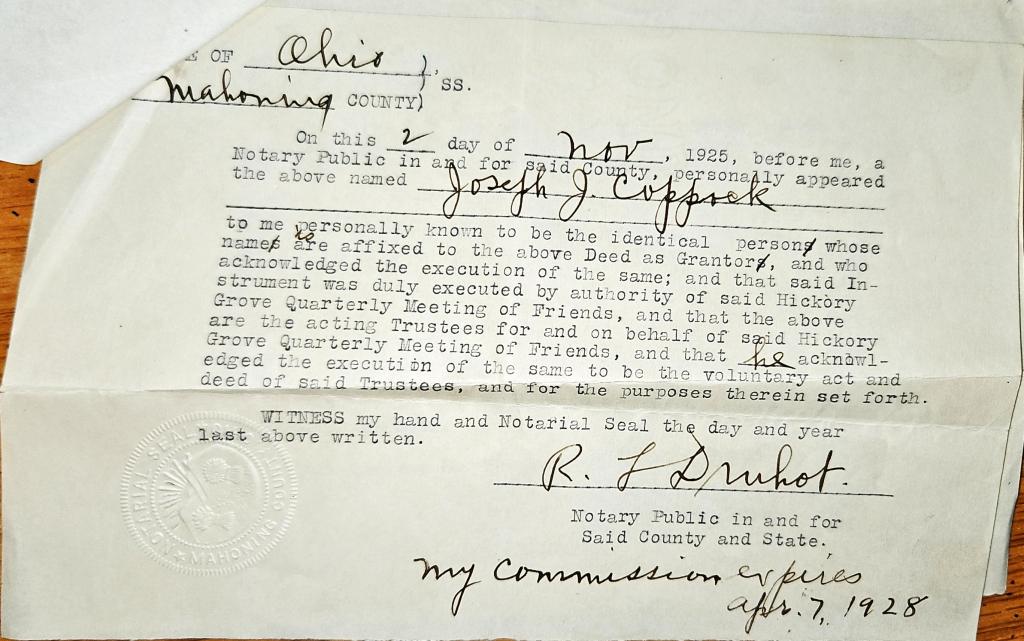 E OF Ohio )
) SS.
Mahoning COUNTY)
On this 2 day of Nov, 1925, before me, a
Notary Public in and for said County, personally appeared
the above named Joseph J. Coppock
to me personally known to be the identical person whose
name is affixed to the above Deed as Grantor, and who
acknowledged the execution of the same; and that said In-
strument was duly executed by authority of said Hickory
Grove Quarterly Meeting of Friends, and that the above
are the acting Trustees for and on behalf of said Hickory
Grove Quarterly Meeting of Friends, and that he acknowl-
edged the execution of the same to be the voluntary act and
deed of said Trustees, and for the purposes therein set forth.
WITNESS my hand and Notarial Seal the day and year
last above written.
R. L Druhot.
Notary Public in and for
Said County and State.
My Commission expires
Apr. 7, 1928
NOTARIAL SEAL
MAHONING COUNTY